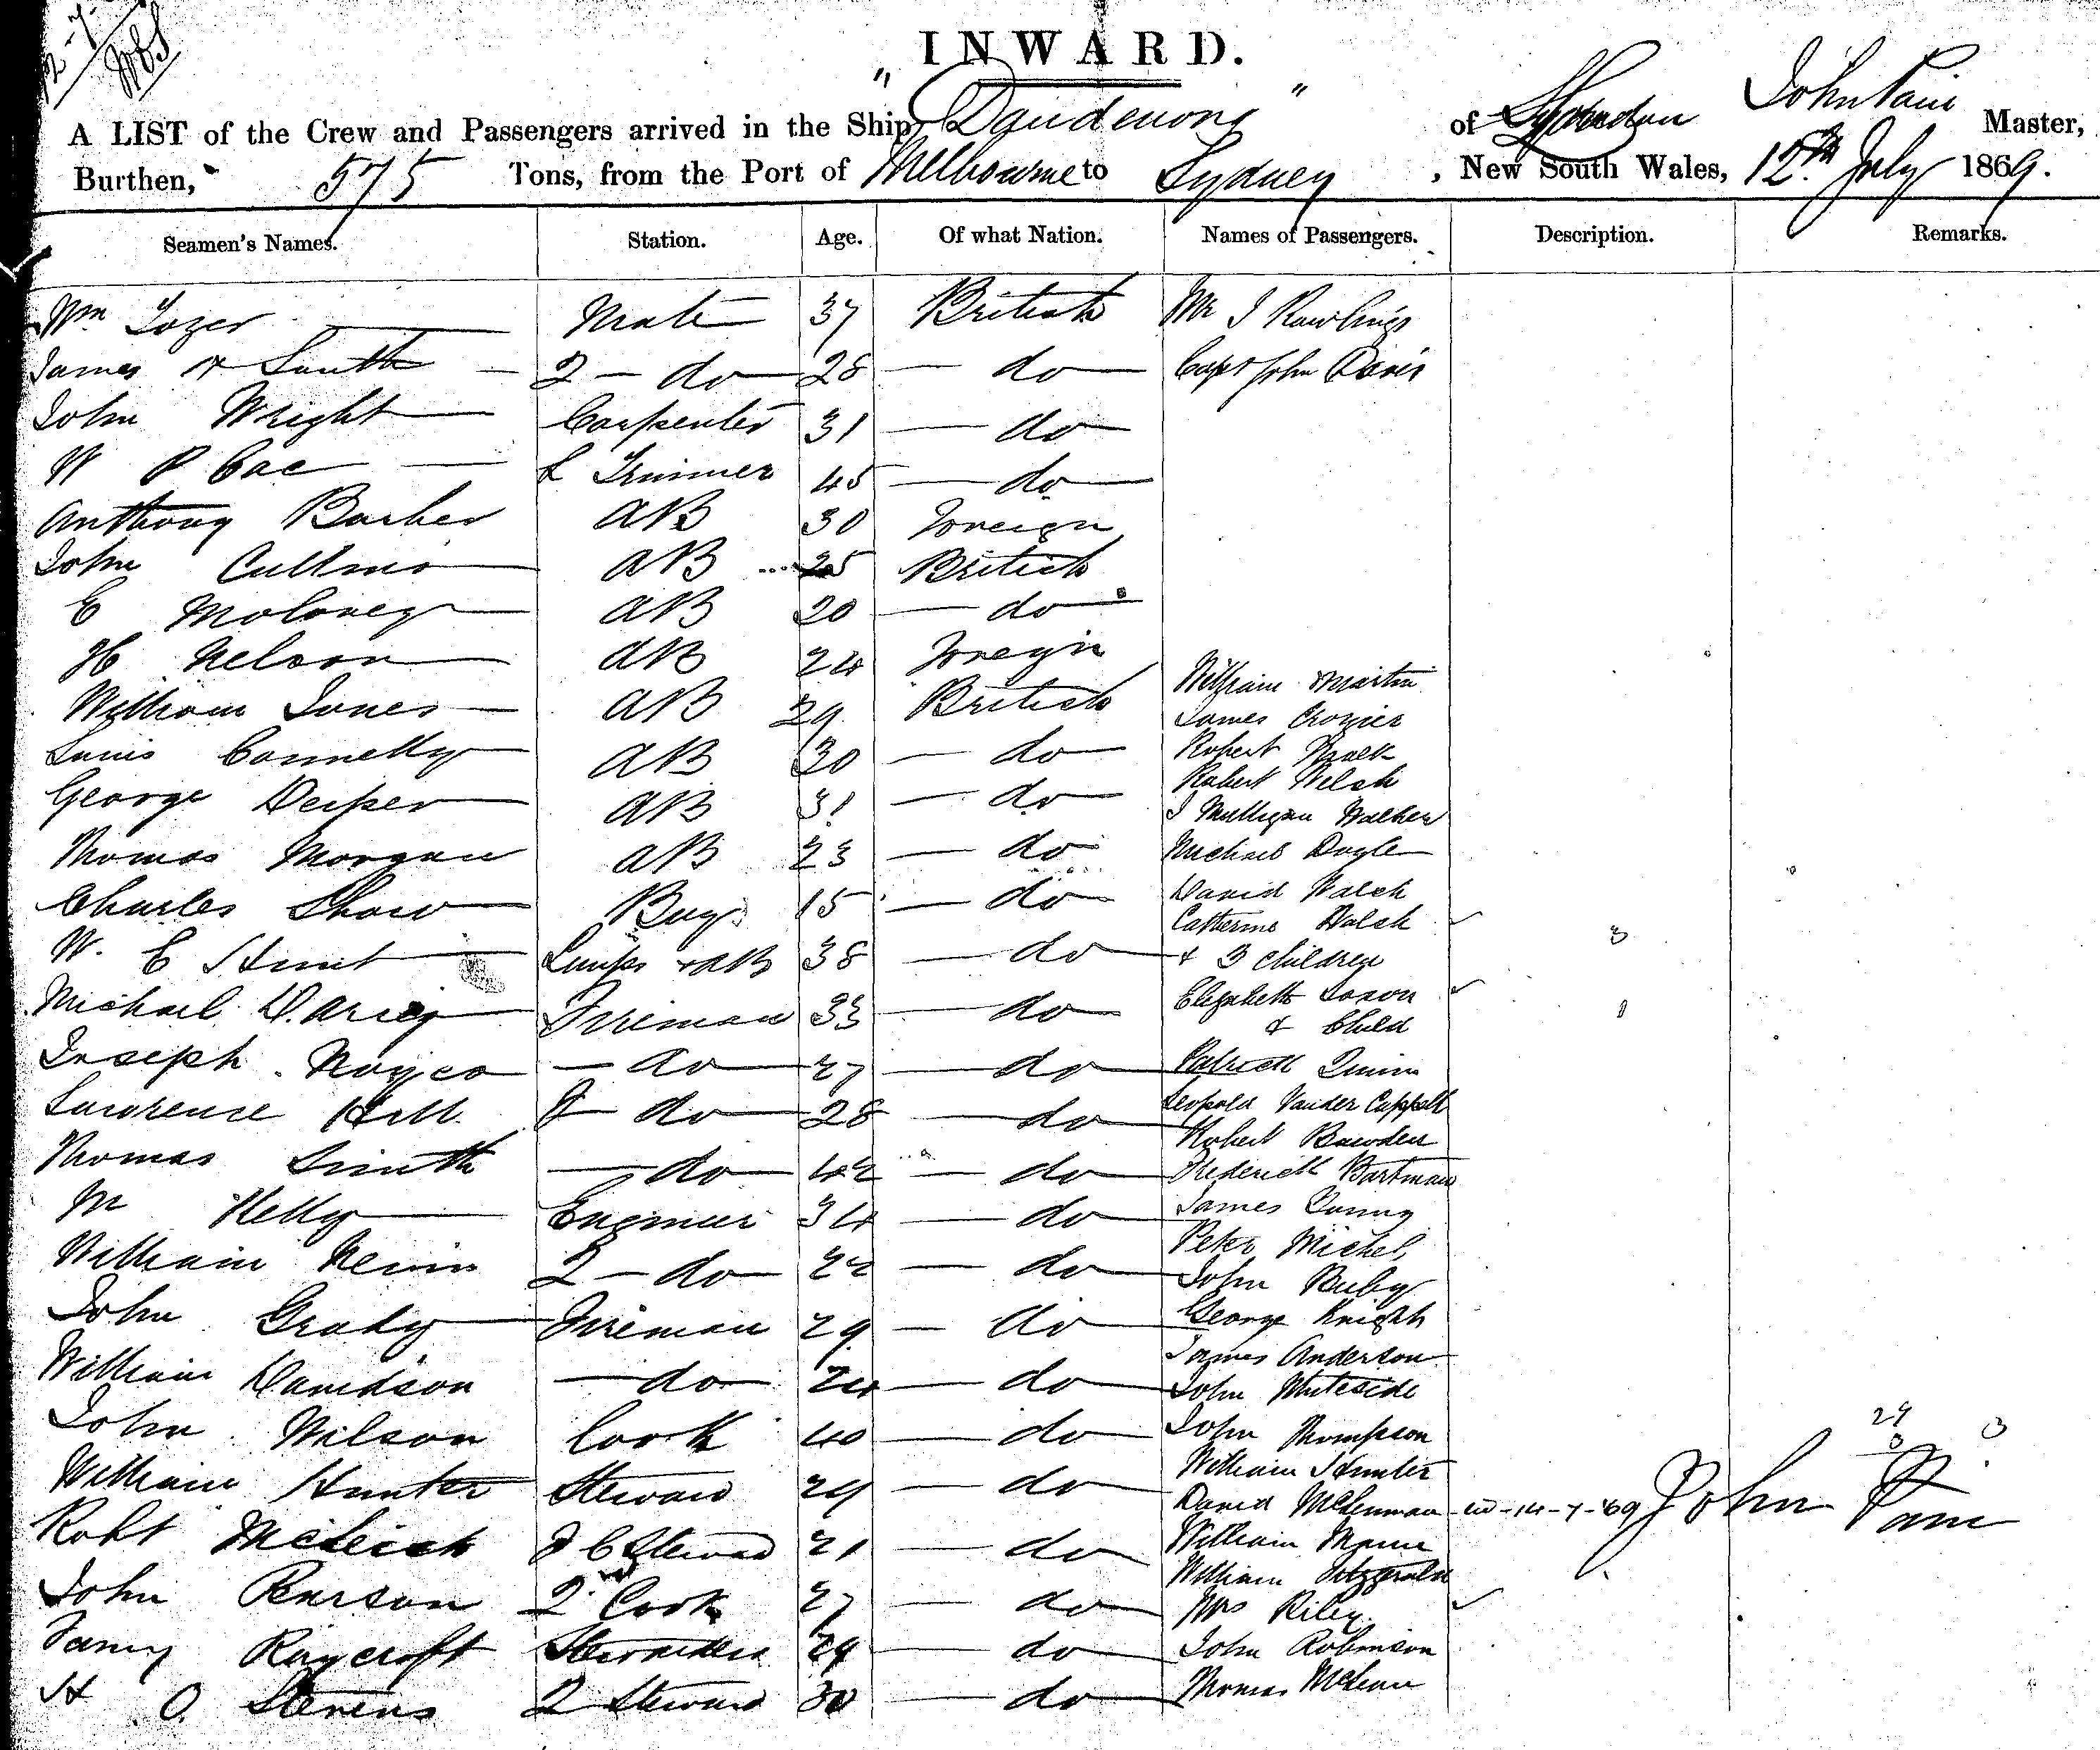 INWARD.
A LIST of the Crew and Passengers arrived in the Ship "Dandenong" of John Pain Master,
Burthen, 575 Tons, from the Port of Melbourne to Sydney, New South Wales, 12th July 1869.
Seamen's Names. Station. Age. Of what Nation. Names of Passengers. Description. Remarks.
Wm Tozer Mate 37 British Mr J Rawlings
James Smith 2 - do 28 do Capt John Davis
John Wright Carpenter 31 do
W P L Trimmer 45 do
Anthony Barber AB 30 Foreign
John AB 25 British
E Moloney AB 20 do
H Nelson AB 24 Foreign
William Martin
William Jones AB 29 British
James Crozier
Connelly AB 30 do
Robert
Robert Welsh
George AB 31 do
J Mulligan Walker
Thomas Morgan AB 23 do
Michael Doyle
Charles Shaw Boy 15 do
David Walsh
Catherine Walsh
W. E Hunt Lamps & AB 38 do
& 3 children 3
Elizabeth
Michael Fireman 33 do
& Child 1
Joseph do 27 do
Patrick Quinn
Lawrence Hill do 28 do
Leopold Vander Cappell
Robert Bowden
Thomas Smith do 42 do
Frederick Bartman
M Kelly Engineer 34 do
James
Peter Michel
William Nevin 2 - do 22 do
John Ruby
John Grady Fireman 29 do
George Knight
James Anderson
William Davidson do 24 do
John Whiteside
John Wilson Cook 40 do
John Thompson
29 3
William Hunter
William Hunter Steward 29 do
David McLennan 14-7-69 John Pain
Robt McLeish F C Steward 21 do
William
William Fitzgerald
John Pearson 2 Cook 27 do
Mrs Riley
Fanny Raycroft Stewardess 29 do
John Robinson
Thomas McLean
H O. Stevens 2 Steward 30 do